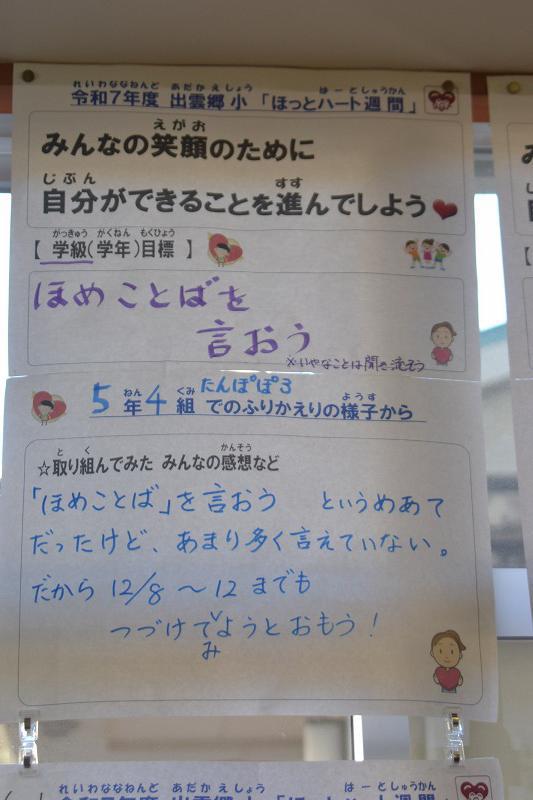 れいわななねんど あだかえしょう はーとしゅうかん
令和7年度 出雲郷小 「ほっとハート週間」
えがお
みんなの笑顔のために
じぶん すす
自分ができることを進んでしよう
がっきゅう がくねん もくひょう
【 学級(学年)目標 】
ほめことばを
言おう
※いやなことは聞き流そう
ねん くみ たんぽぽ3 ようす
5年4組 でのふりかえりの様子から
と く かんそう
☆取り組んでみた みんなの感想など
「ほめことば」を言おう というめあて
だったけど、あまり多く言えていない。
だから 12/8 ~12 までも
つづけてようとおもう!
み
れいわななねんど あだかえしょう はーとしゅうかん
令和7年度 出雲郷小 「ほっとハート週間